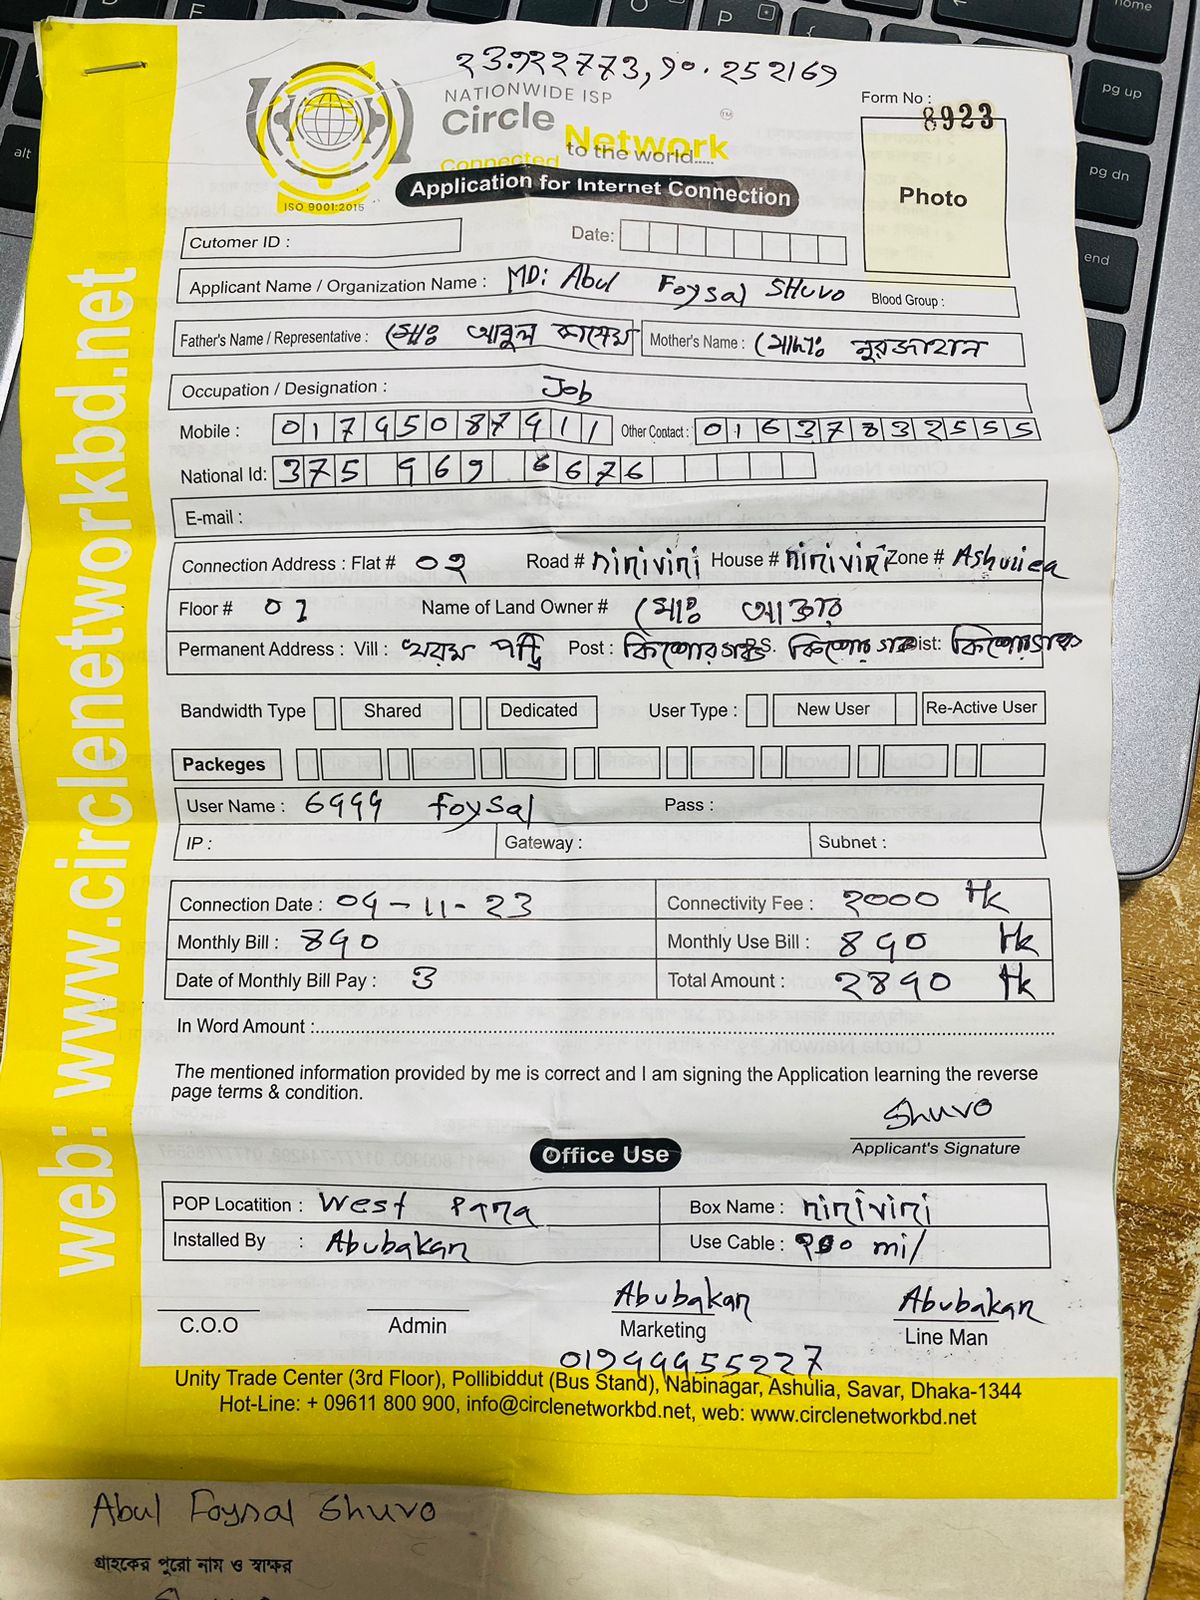 23.922773, 90.252169
NATIONWIDE ISP
Circle Network
Connected to the world.....
TM
ISO 9001:2015
Form No : 8923
Photo
Application for Internet Connection
Cutomer ID :
Date:
Applicant Name / Organization Name : MD: Abul Foysal SHUVO Blood Group :
Father's Name / Representative : মোঃ আবুল কাশেম Mother's Name : মোছাঃ নুরজাহান
Occupation / Designation : Job
Mobile : 01795087911 Other Contact : 01637832555
National Id: 375 969 6676
E-mail :
Connection Address : Flat # 02 Road # niriviri House # niriviri Zone # Ashuliea
Floor # 01 Name of Land Owner # মোঃ আক্তার
Permanent Address : Vill : Post : কিশোরগঞ্জ P.S. কিশোরগঞ্জ Dist: কিশোরগঞ্জ
Bandwidth Type Shared Dedicated User Type : New User Re-Active User
Packeges
User Name : 6999 foysal Pass :
IP : Gateway : Subnet :
Connection Date : 04-11-23 Connectivity Fee : 2000 tk
Monthly Bill : 890 Monthly Use Bill : 890 tk
Date of Monthly Bill Pay : 3 Total Amount : 2890 tk
In Word Amount :
The mentioned information provided by me is correct and I am signing the Application learning the reverse
page terms & condition.
Shuvo
Applicant's Signature
Office Use
POP Locatition : West Para Box Name : niriviri
Installed By : Abubakar Use Cable : mi/
Abubakar Abubakar
C.O.O Admin Marketing Line Man
Unity Trade Center (3rd Floor), Pollibiddut (Bus Stand), Nabinagar, Ashulia, Savar, Dhaka-1344
Hot-Line: + 09611 800 900, info@circlenetworkbd.net, web: www.circlenetworkbd.net
web: www.circlenetworkbd.net
Abul Foysal Shuvo
গ্রাহকের পুরো নাম ও স্বাক্ষর
alt
P
home
pg up
pg dn
end